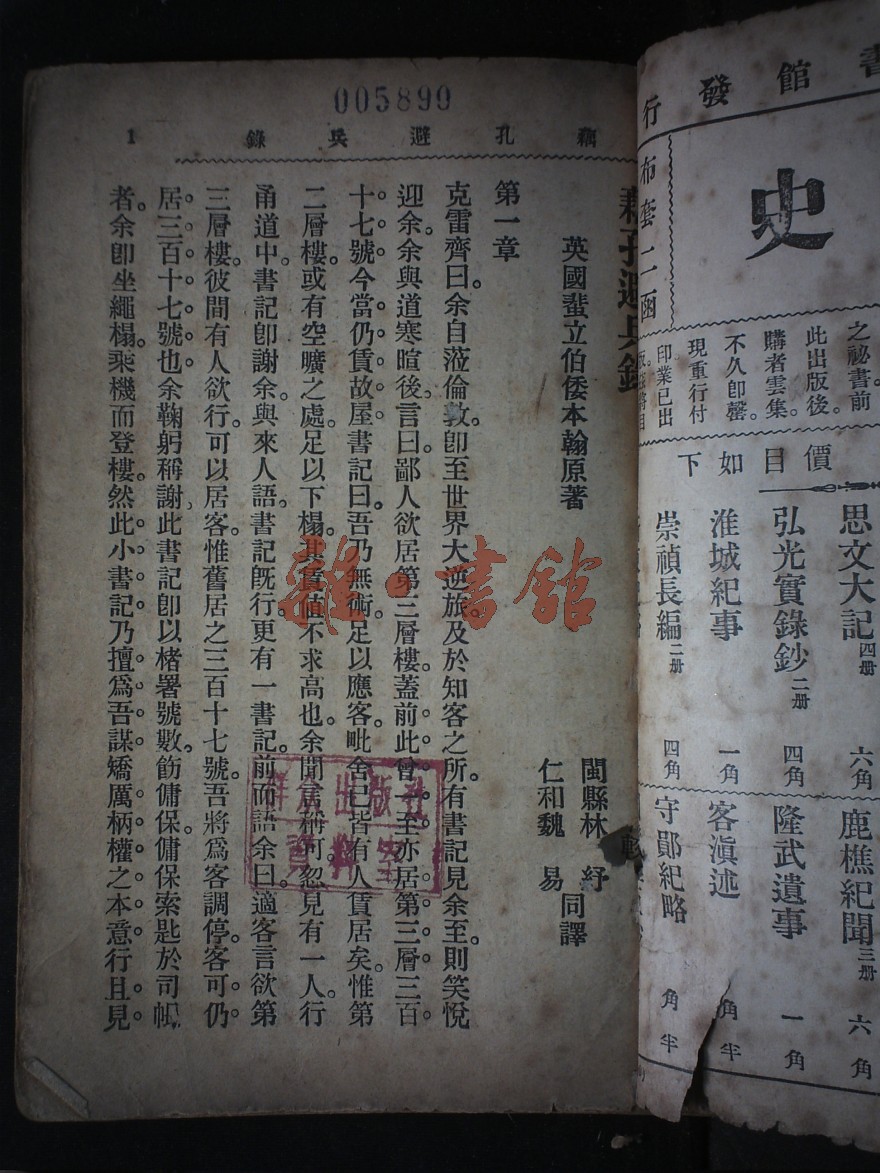 書館發行
史
布套二函
之祕書前
此出版後。
購者雲集。
不久卽罄。
現重行付
印業已出
價目如下
思文大記四册 六角
弘光實錄鈔二册 四角
淮城紀事 一角
崇禎長編二册 四角
鹿樵紀聞三册 六角
隆武遺事 一角
客滇述 角半
守鄖紀略 角半
005899
藕孔避兵錄 1
藕孔避兵錄
英國蜚立伯倭本翰原著
閩縣林 紓
仁和魏 易
同譯
第一章
克雷齊曰。余自蒞倫敦。卽至世界大逆旅。及於知客之所。有書記見余至。則笑悅
迎余。余與道寒暄後。言曰。鄙人欲居第三層樓。蓋前此曾一至。亦居第三層三百
十七號。今當仍賃故屋。書記曰。吾乃無術足以應客。毗舍已皆有人賃居矣。惟第
二層樓。或有空曠之處。足以下榻。其賃值不求高也。余聞言稱可。忽見有一人。行
甬道中。書記卽謝余。與來人語。書記旣行。更有一書記。前而語余曰。適客言欲第
三層樓。彼間有人欲行。可以居客。惟舊居之三百十七號。吾將爲客調停。客可仍
居三百十七號也。余鞠躬稱謝。此書記卽以楮署號數。飭傭保。傭保索匙於司帳
者。余卽坐繩榻。乘機而登樓。然此小書記乃擅爲吾謀。矯厲柄權之本意。行且見
雜·書館